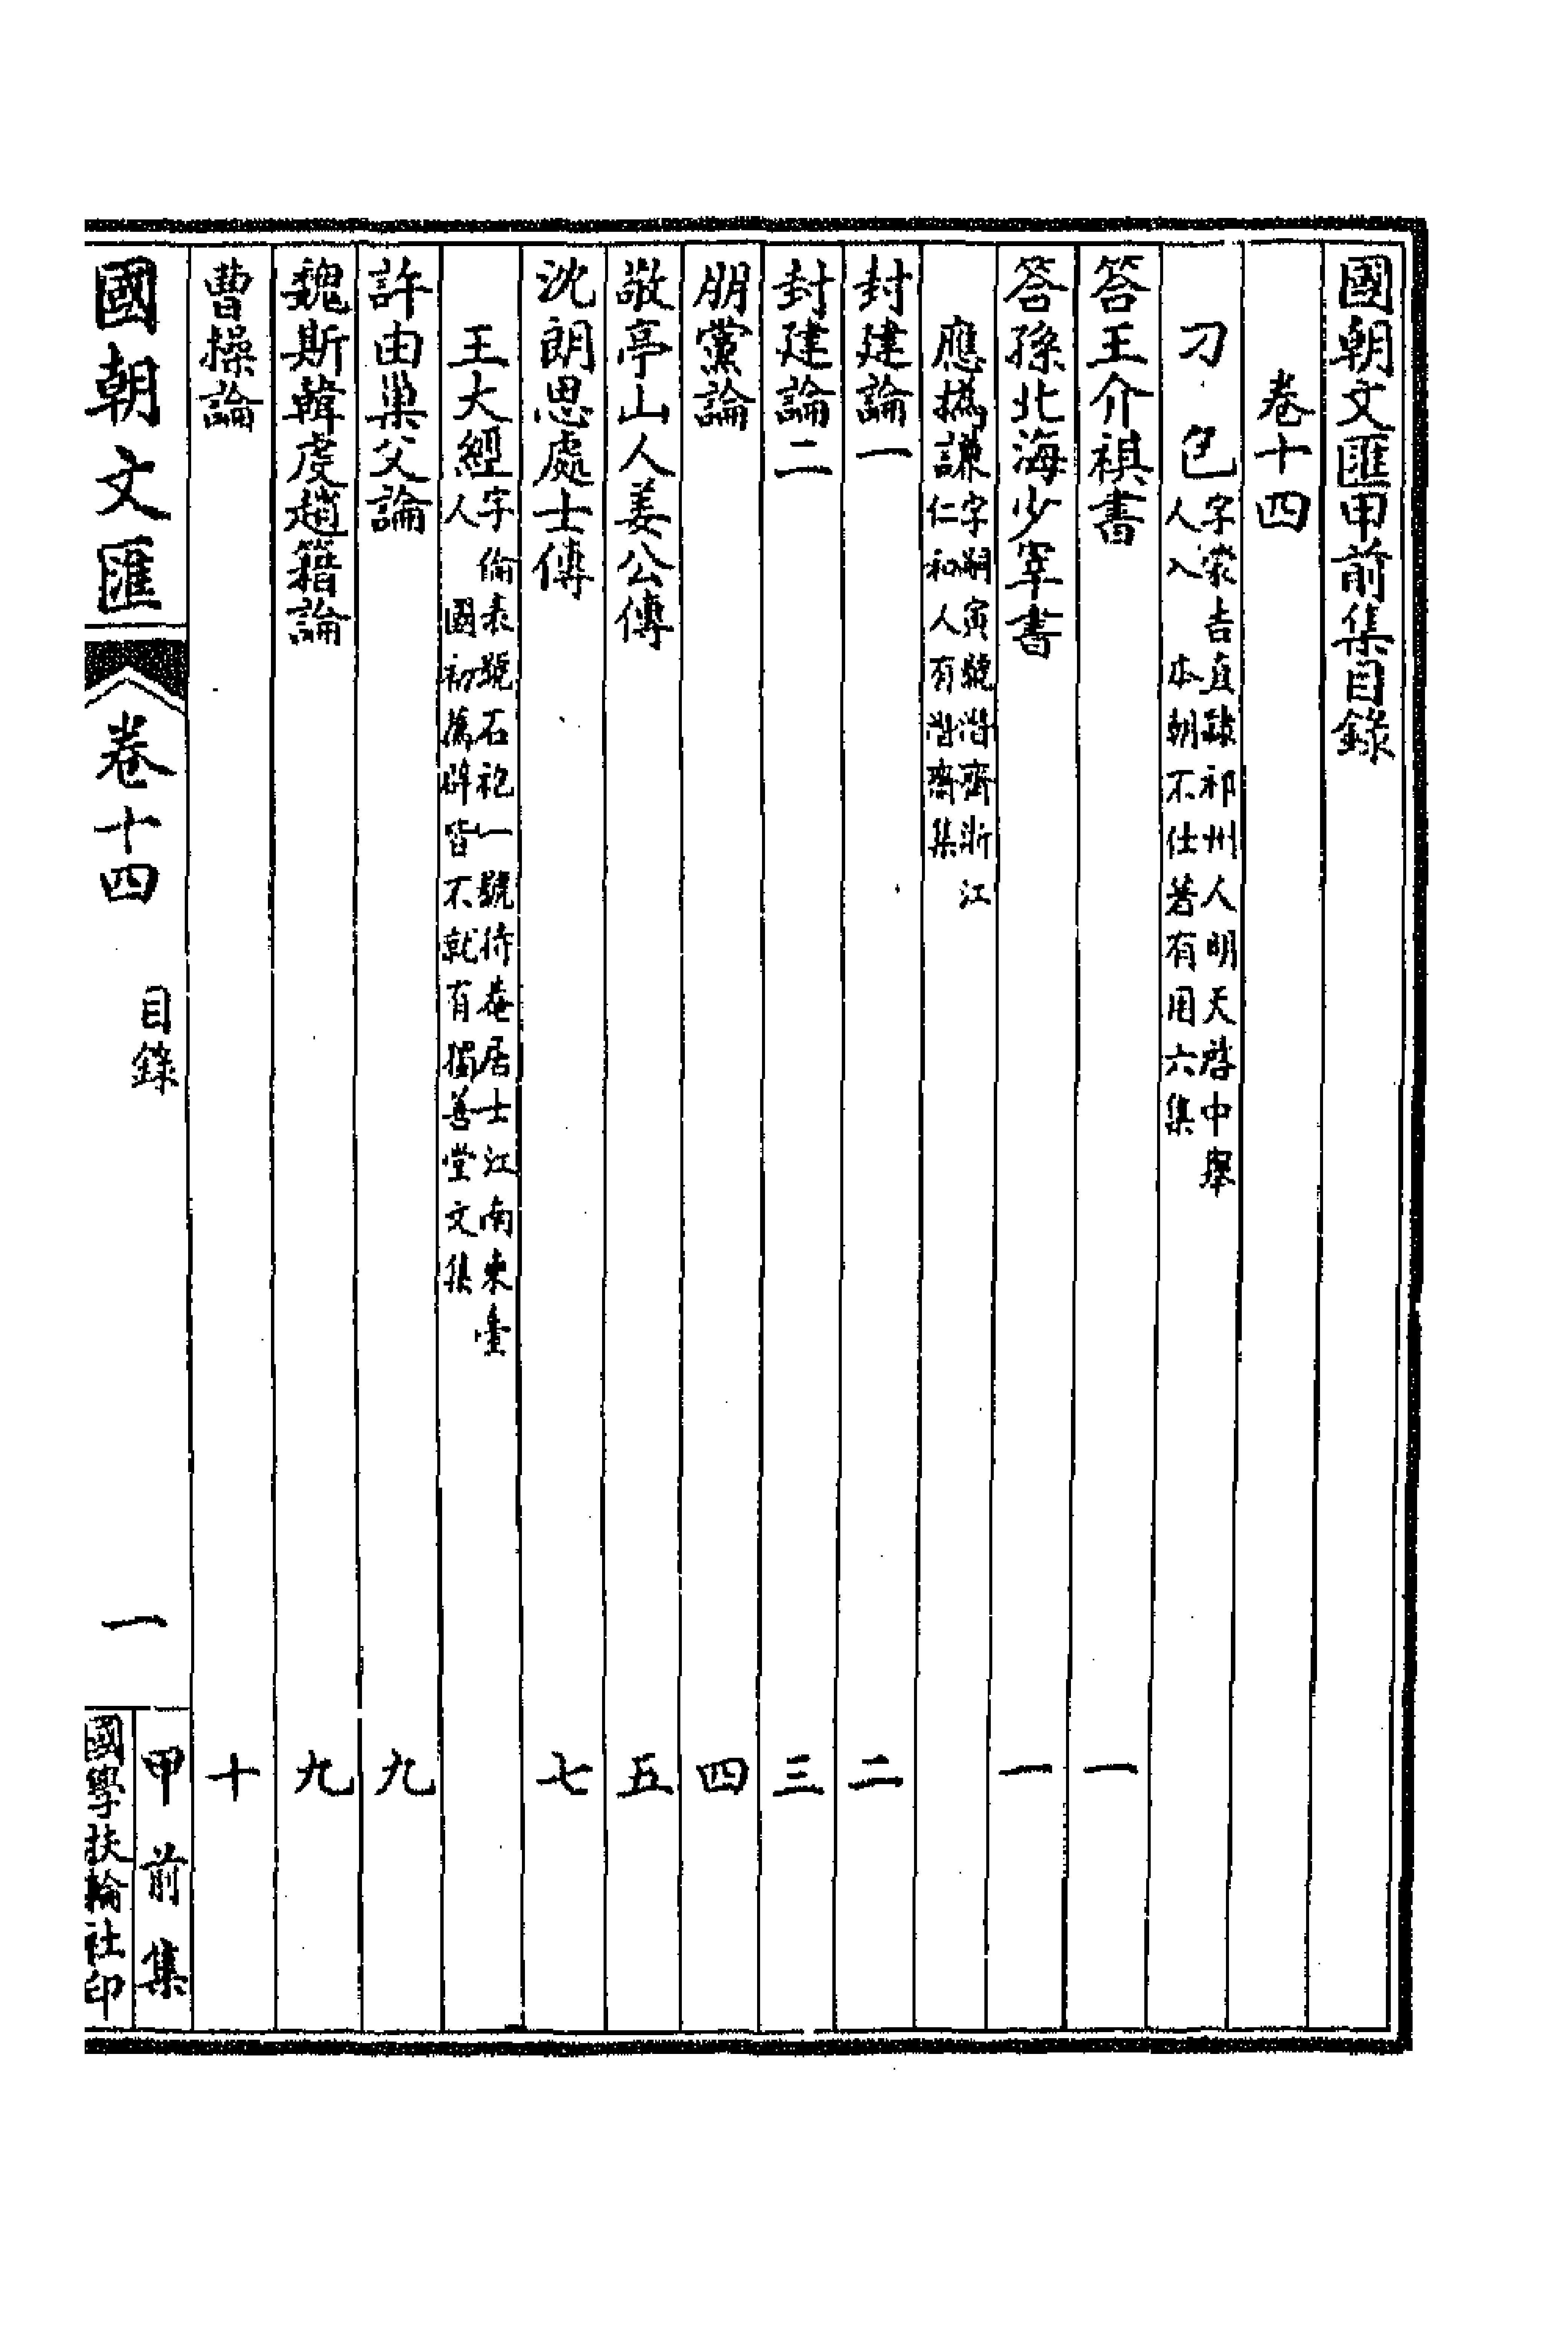 國朝文匯甲前集目錄
卷十四
刁包 字蒙吉直隸祁州人明天啓中舉
人入 本朝不仕著有用六集
答王介祺書 一
答孫北海少宰書 一
應撝謙 字嗣寅號潛齋浙江
仁和人有潛齋集
封建論一 二
封建論二 三
朋黨論 四
敬亭山人姜公傳 五
沈朗思處士傳 七
王大經 字倫表號石袍一號待菴居士江南東臺
人 國初薦辟皆不就有獨善堂文集
許由巢父論 九
魏斯韓虔趙籍論 九
曹操論 十
國朝文匯 卷十四 目錄 一
甲前集
國學扶輪社印